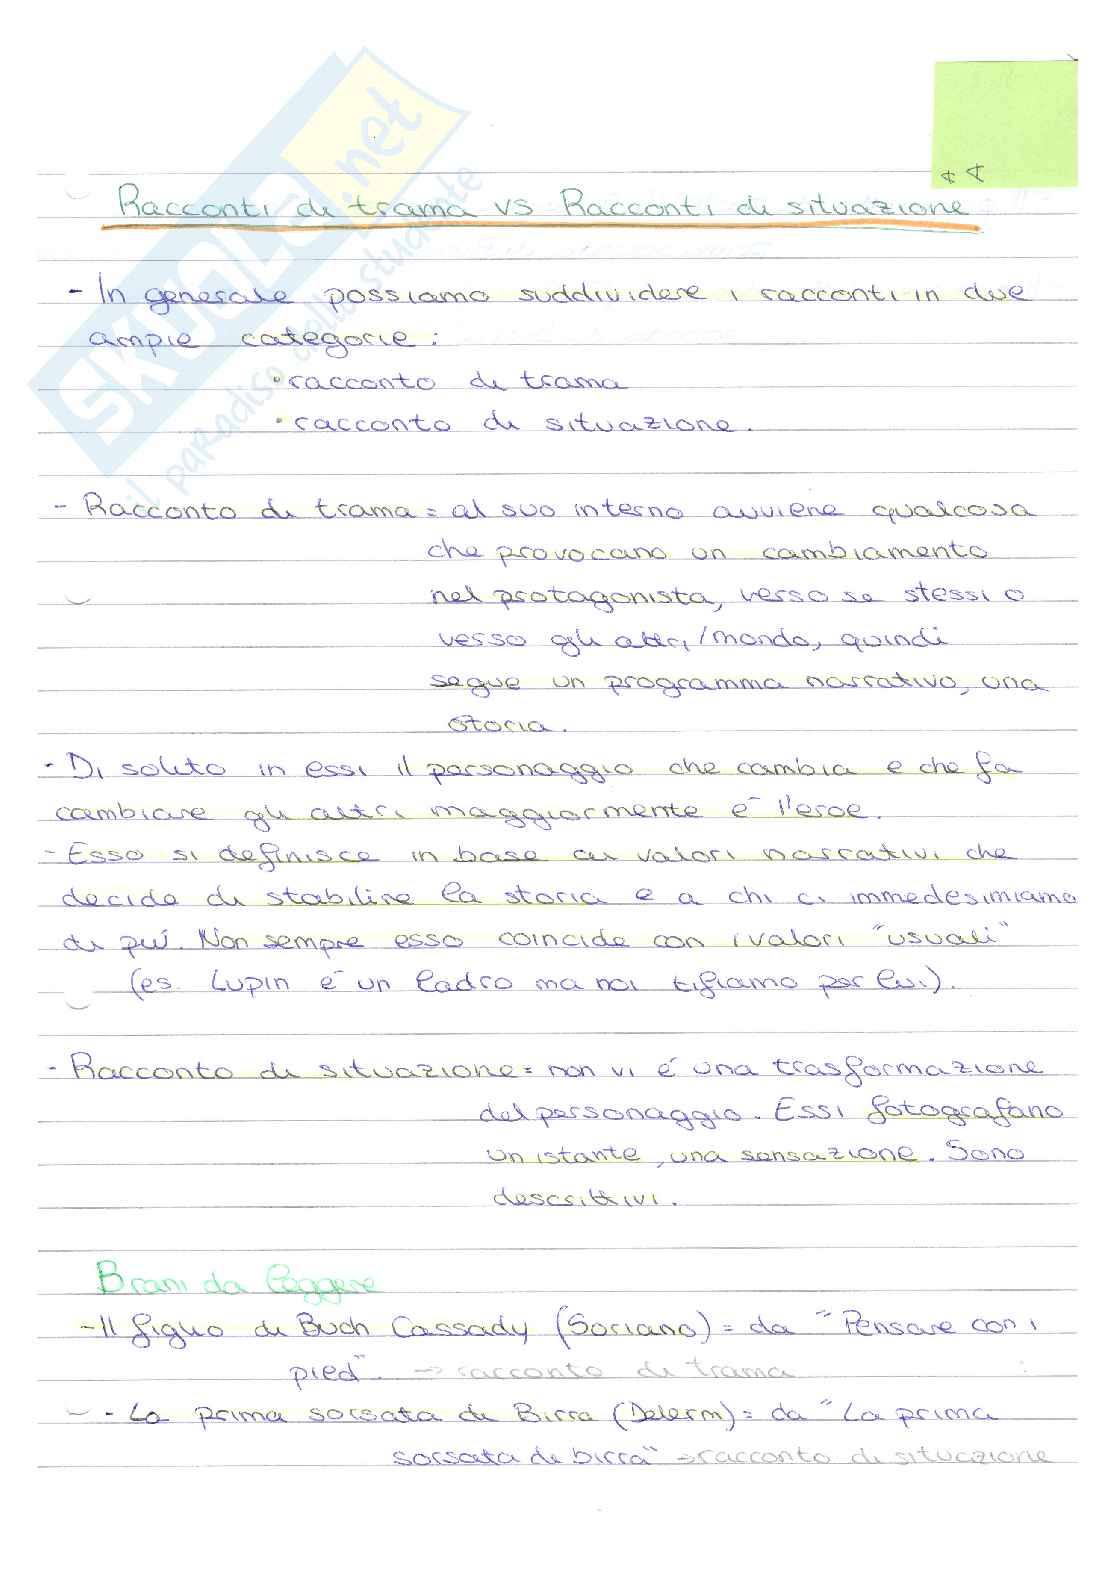 SKUOLA.net
il paradiso dello studente
Racconti di trama vs Racconti di situazione
- In generale possiamo suddividere i racconti in due
ampie categorie:
• racconto di trama
• racconto di situazione.
- Racconto di trama = al suo interno avviene qualcosa
che provocano un cambiamento
nel protagonista, verso se stessi o
verso gli altri/mondo, quindi
segue un programma narrativo, una
storia.
- Di solito in essi il personaggio che cambia e che fa
cambiare gli altri maggiormente è l'eroe.
- Esso si definisce in base ai valori narrativi che
decide di stabilire la storia e a chi ci immedesimiamo
di più. Non sempre esso coincide con i valori "usuali"
(es. Lupin è un ladro ma noi tifiamo per lui).
- Racconto di situazione = non vi è una trasformazione
del personaggio. Essi fotografano
un istante, una sensazione. Sono
descrittivi.
Brani da leggere
- Il figlio di Buch Cassady (Soriano) = da "Pensare con i
piedi". → racconto di trama
- La prima sorsata di Birra (Delerm) = da "La prima
sorsata di birra" → racconto di situazione